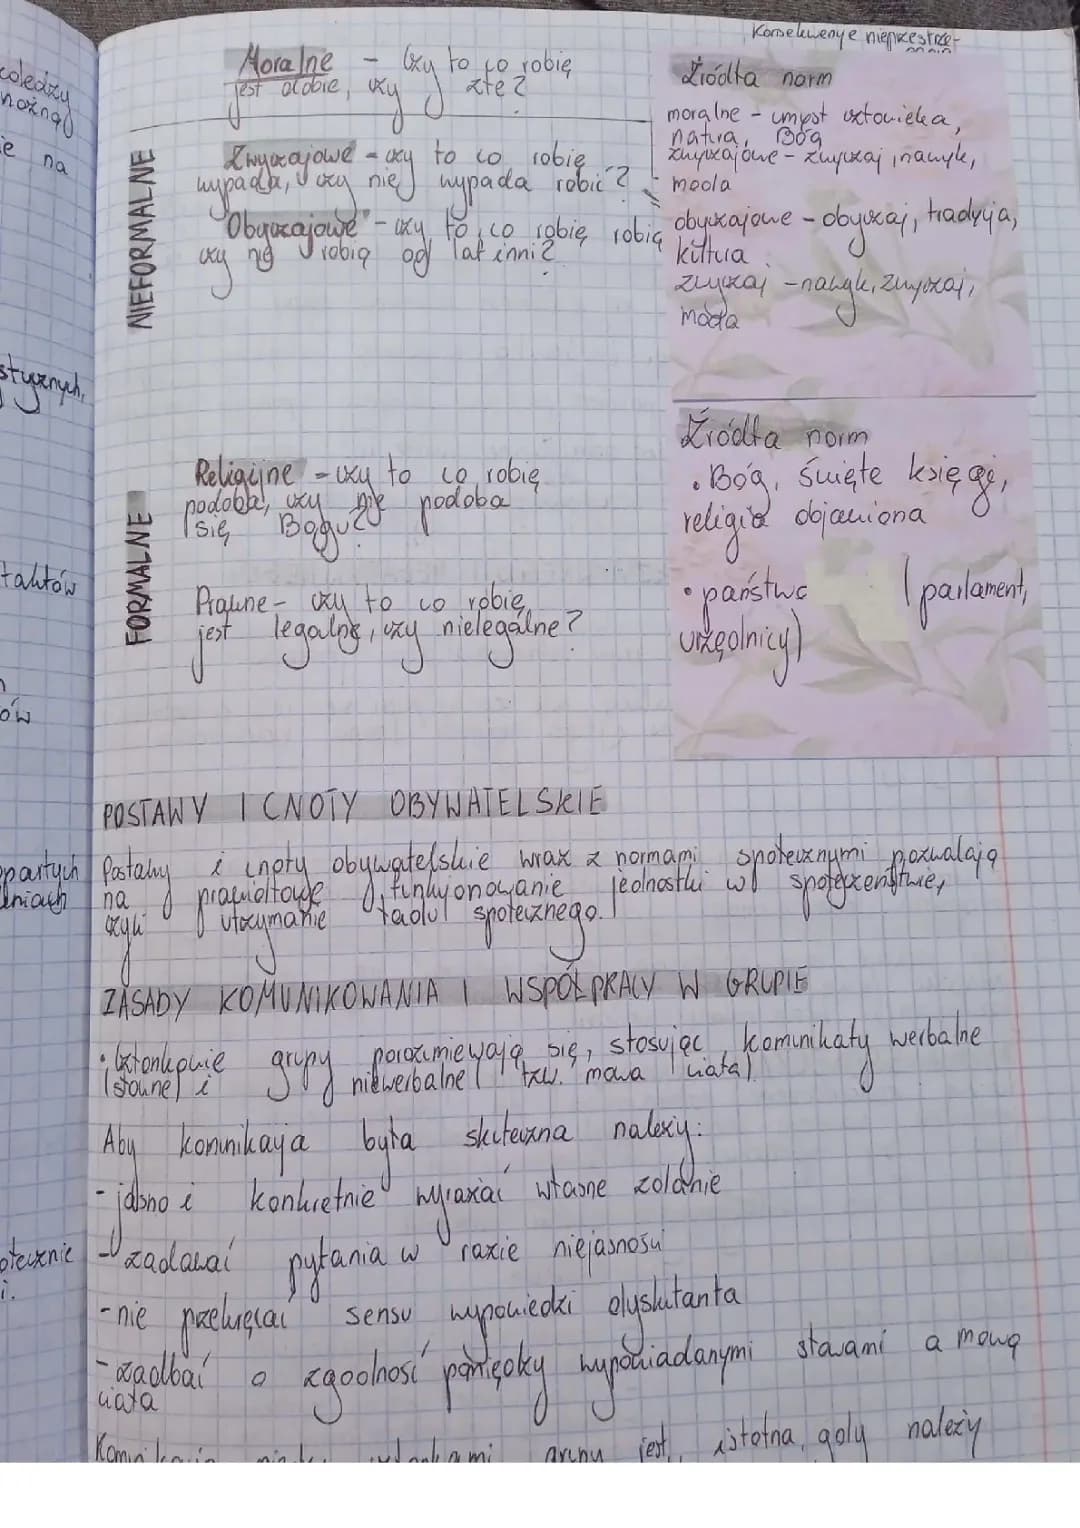 Konsekwencje nieprzestrze-
Moralne - Czy to co robię
jest dobre, czy złe?
NIEFORMALNE
Zwyczajowe - czy to co robię
wypada, czy nie wypada robić?
Obyczajowe - czy to, co robię robią
czy nie robią od lat inni?
Źródła norm
moralne - umysł człowieka,
natura, Bóg
zwyczajowe - zwyczaj, nawyk,
moda
obyczajowe - obyczaj, tradycja,
kultura
zwyczaj - nawyk, zwyczaj,
moda
FORMALNE
Religijne - czy to co robię
podoba, czy nie podoba
się Bogu?
Prawne - czy to co robię
jest legalne, czy nielegalne?
Źródła norm
• Bóg, święte księgi,
religia objawiona
• państwo (parlament,
urzędnicy)
POSTAWY I CNOTY OBYWATELSKIE
Postawy i cnoty obywatelskie wraz z normami społecznymi pozwalają
na prawidłowe funkcjonowanie jednostki w społeczeństwie,
czyli utrzymanie ładu społecznego.
ZASADY KOMUNIKOWANIA I WSPÓŁPRACY W GRUPIE
• Członkowie grupy porozumiewają się, stosując komunikaty werbalne
(słowne) i niewerbalne (tzw. mowa ciała)
Aby komunikacja była skuteczna należy:
- jasno i konkretnie wyrażać własne zdanie
- zadawać pytania w razie niejasności
- nie przekręcać sensu wypowiedzi dyskutanta
- zadbać o zgodność pomiędzy wypowiadanymi słowami a mową
ciała
jest istotna, gdy należy
koledzy
nożną
ie na
stycznych,
taktów
ów
opartych
eniach
ołecznie
i.